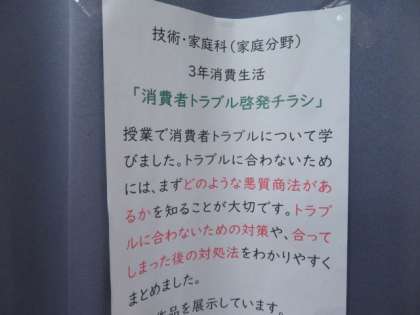 技術・家庭科（家庭分野）
3年消費生活
「消費者トラブル啓発チラシ」
授業で消費者トラブルについて学
びました。トラブルに合わないため
には、まずどのような悪質商法があ
るかを知ることが大切です。トラブ
ルに合わないための対策や、合って
しまった後の対処法をわかりやすく
まとめました。
作品を展示しています。